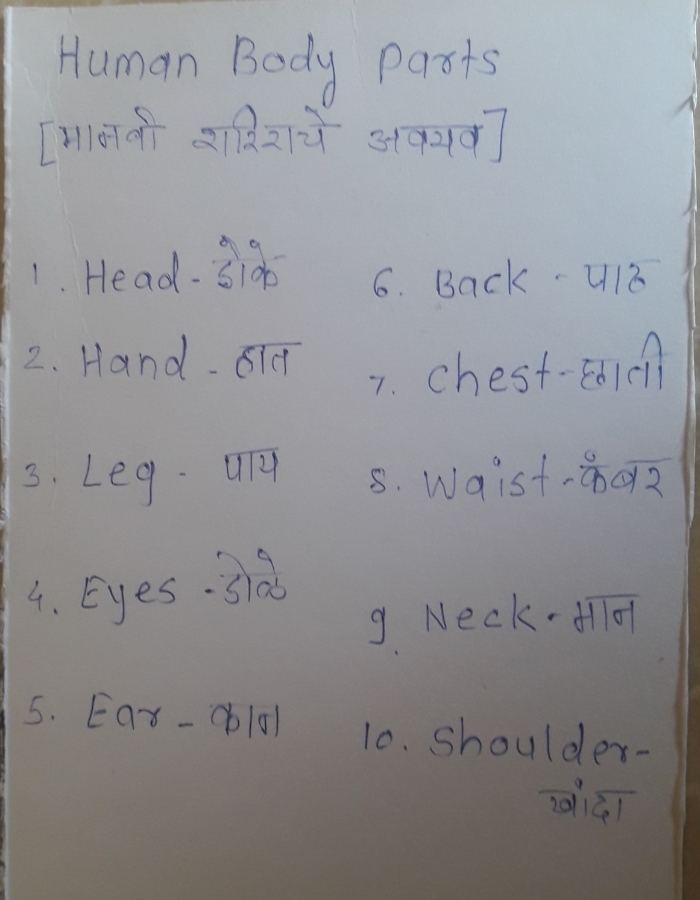 Human Body Parts
[मानवी शरिराचे अवयव]
1. Head - डोके
2. Hand - हात
3. Leg - पाय
4. Eyes - डोळे
5. Ear - कान
6. Back - पाठ
7. Chest - छाती
8. Waist - कंबर
9. Neck - मान
10. Shoulder -
खांदा